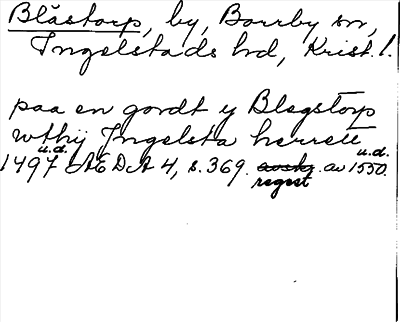 Blåstorp, by, Borrby sn,
Ingelstads hd, Krist. l.
paa en gordt y Blegstorp
wthij Ingelsta herrett
1497 u.d. AEDA 4, s. 369. avskr. regest av 1550. u.d.